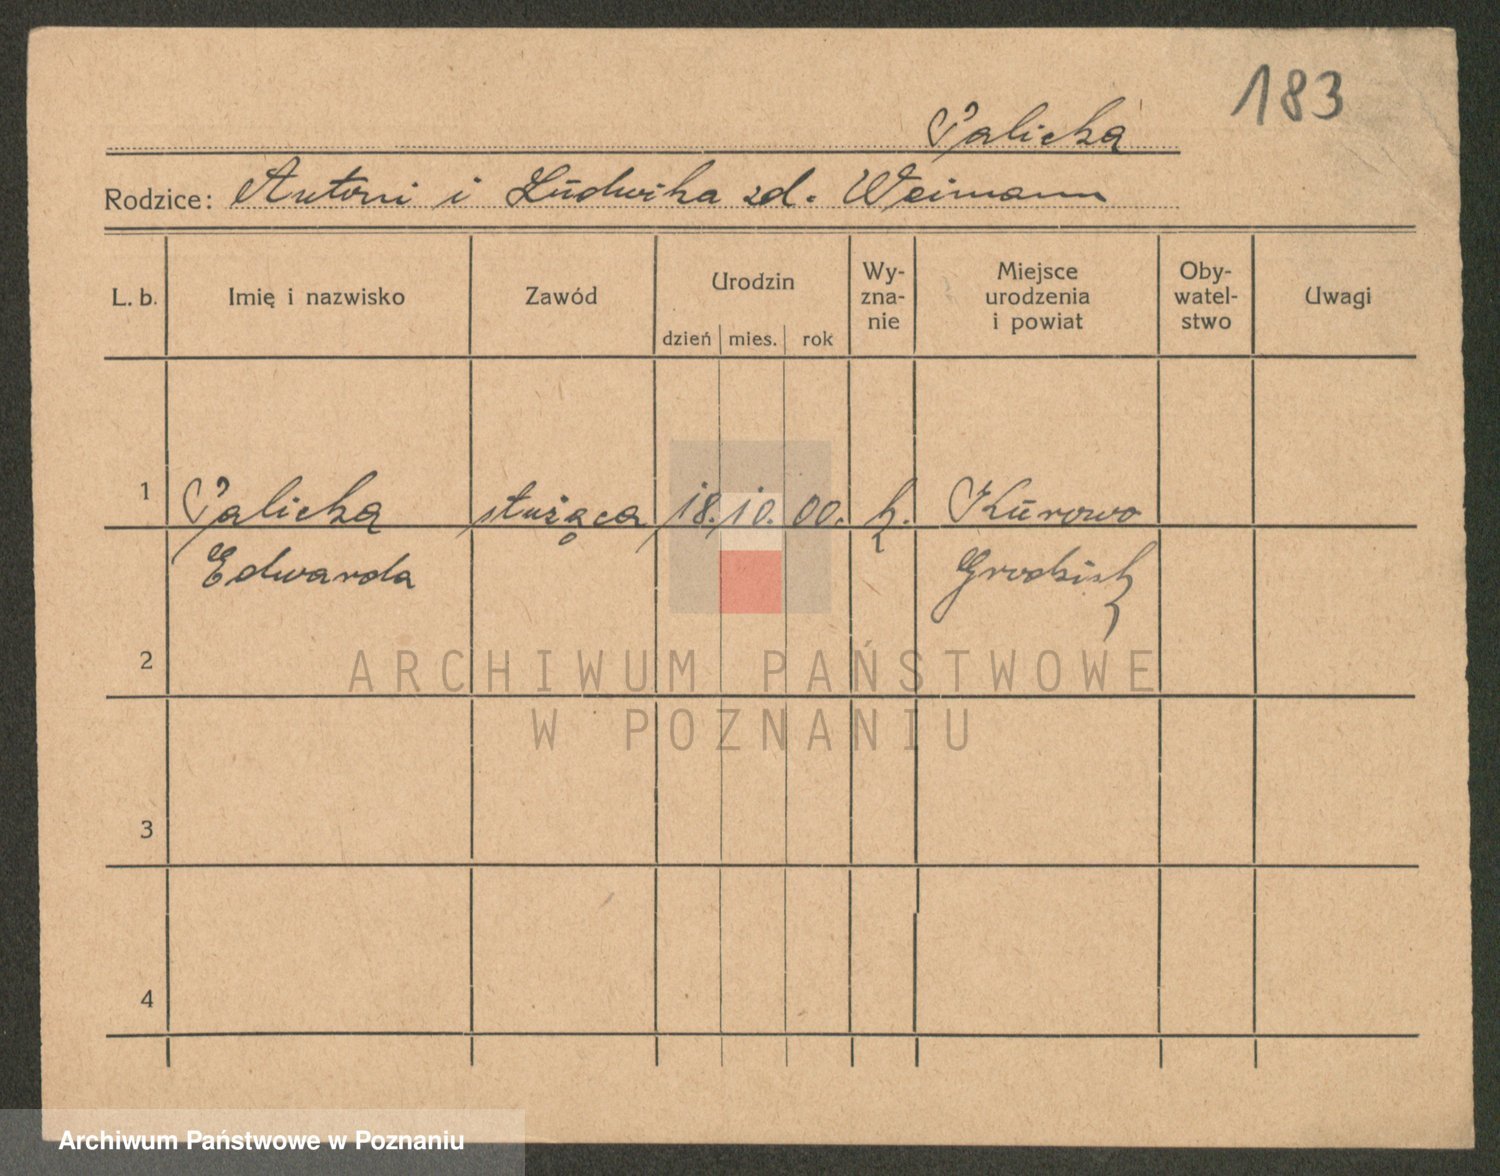 183
Palicka
Rodzice: Antoni i Ludwika zd. Weimann
L. b. Imię i nazwisko Zawód Urodzin Wy-zna-nie Miejsce urodzenia i powiat Oby-watel-stwo Uwagi
dzień mies. rok
1 Palicka służąca 18. 10. 00. k. Kurowo
Edwarda Grodzisk
2
ARCHIWUM PAŃSTWOWE
W POZNANIU
3
4
Archiwum Państwowe w Poznaniu